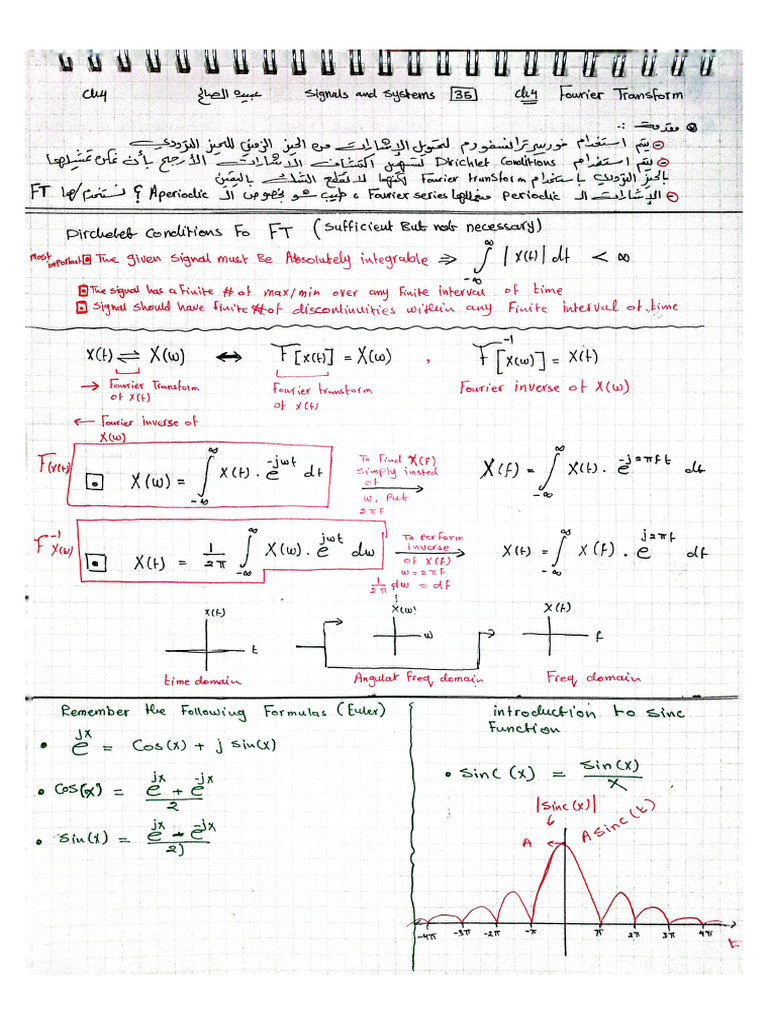 Ch4 عبيده الصالح Signals and Systems 36 Ch4 Fourier Transform
مقدمة :-
يتم استخدام فورير ترانسفورم لتحويل الإشارات من الحيز الزمني للحيز الترددي
يتم استخدام Dirichlet Conditions لتسهيل اكتشاف الاشارات الأرجح بأن يمكن تمثيلها
بالحيز الترددي باستخدام Fourier transform لكنها لا تقطع الشك باليقين
الإشارات الـ Periodic Fourier series طيب شو بخصوص الـ Aperiodic ؟ FT
Dirchelet Conditions Fo FT (Sufficient But not necessary)
Most important The given Signal must Be Absolutely integrable ⇒ ∫_{-∞}^{∞} |x(t)| dt < ∞
The signal has a Finite # of max/min over any Finite interval of time
Signal should have finite # of discontinuities within any Finite interval of time
x(t) ⇌ X(w) ↔ F[x(t)] = X(w) , F^{-1}[X(w)] = x(t)
→ Fourier Transform of x(t) Fourier transform of x(t) Fourier inverse of X(w)
← Fourier inverse of X(w)
F(x(t)) X(w) = ∫_{-∞}^{∞} x(t) . e^{-jwt} dt To Find X(F) Simply insted of w, Put 2πf X(f) = ∫_{-∞}^{∞} x(t) . e^{-j2πft} dt
F^{-1} X(w) x(t) = 1/2π ∫_{-∞}^{∞} X(w) . e^{jwt} dw To perform inverse of X(f) w = 2πf 1/2π dw = df x(t) = ∫_{-∞}^{∞} X(f) . e^{j2πf} df
x(t) X(w) X(t)
t w f
time domain Angular Freq domain Freq domain
Remember the Following Formulas (Euler)
e^{jx} = Cos(x) + j Sin(x)
Cos(x) = (e^{jx} + e^{-jx})/2
Sin(x) = (e^{jx} - e^{-jx})/2j
introduction to Sinc Function
Sinc (x) = Sin(x)/x
|Sinc(x)|
A A Sinc(t)
-4π -3π -2π -π π 2π 3π 4π t